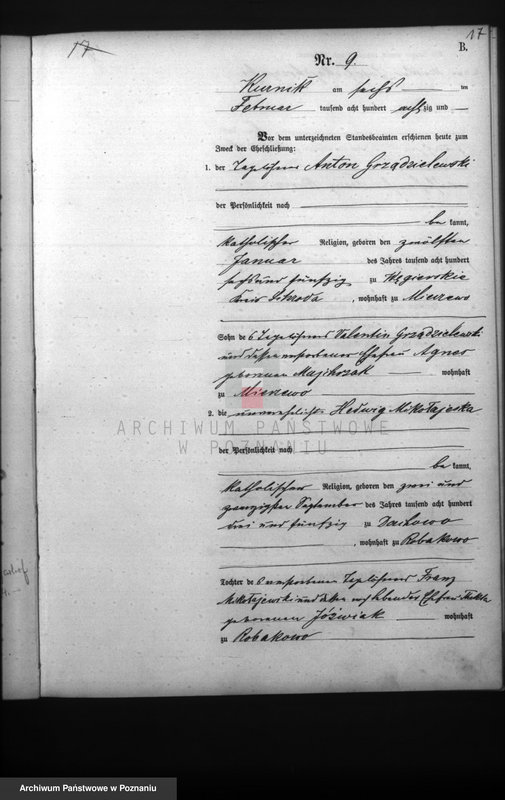 17
17
B.
Nr. 9.
Kurnik am sechs ten
Februar tausend acht hundert achtzig und
Vor dem unterzeichneten Standesbeamten erschienen heute zum
Zweck der Eheschließung:
1. der Tagelöhner Anton Grządzielewski
der Persönlichkeit nach
be kannt,
katholischer Religion, geboren den zwölften
Januar des Jahres tausend acht hundert
sechs und fünfzig zu Węgierskie
Kreis Schroda, wohnhaft zu
Sohn des Tagelöhners Valentin Grządzielewski
und dessen verstorbener Ehefrau Agnes
geborenen Majchrzak wohnhaft
zu
2. die unverehelichte Hedwig Mikołajeska
ARCHIWUM PAŃSTWOWE
W POZNANIU
der Persönlichkeit nach
be kannt,
katholischer Religion, geboren den zwei und
zwanzigsten September des Jahres tausend acht hundert
drei und fünfzig zu
, wohnhaft zu Robakowo
Tochter des verstorbenen Tagelöhners Franz
Mikołajewski und dessen noch lebender Ehefrau Thekla
geborenen Jóźwiak wohnhaft
zu Robakowo
Archiwum Państwowe w Poznaniu